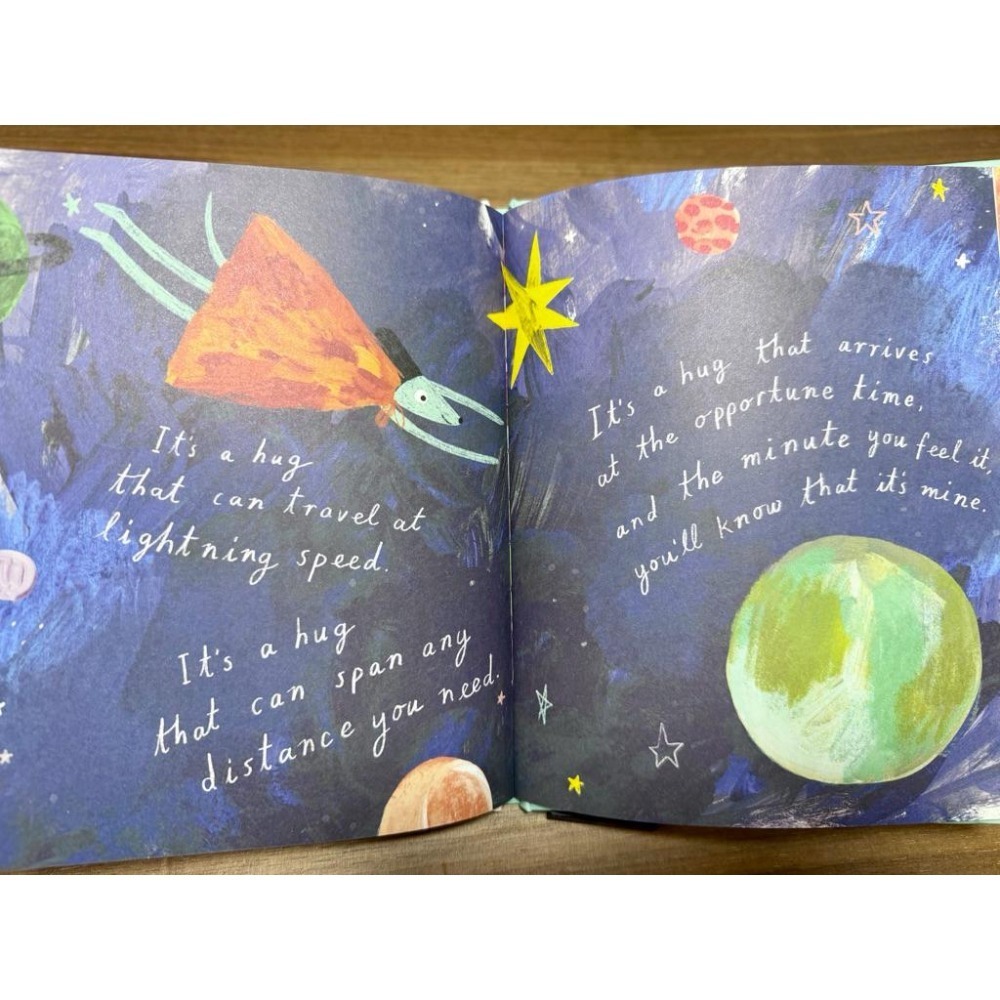 It's a hug
that can travel at
lightning speed.
It's a hug
that can span any
distance you need.
It's a hug that arrives
at the opportune time,
and the minute you feel it,
you'll know that it's mine.